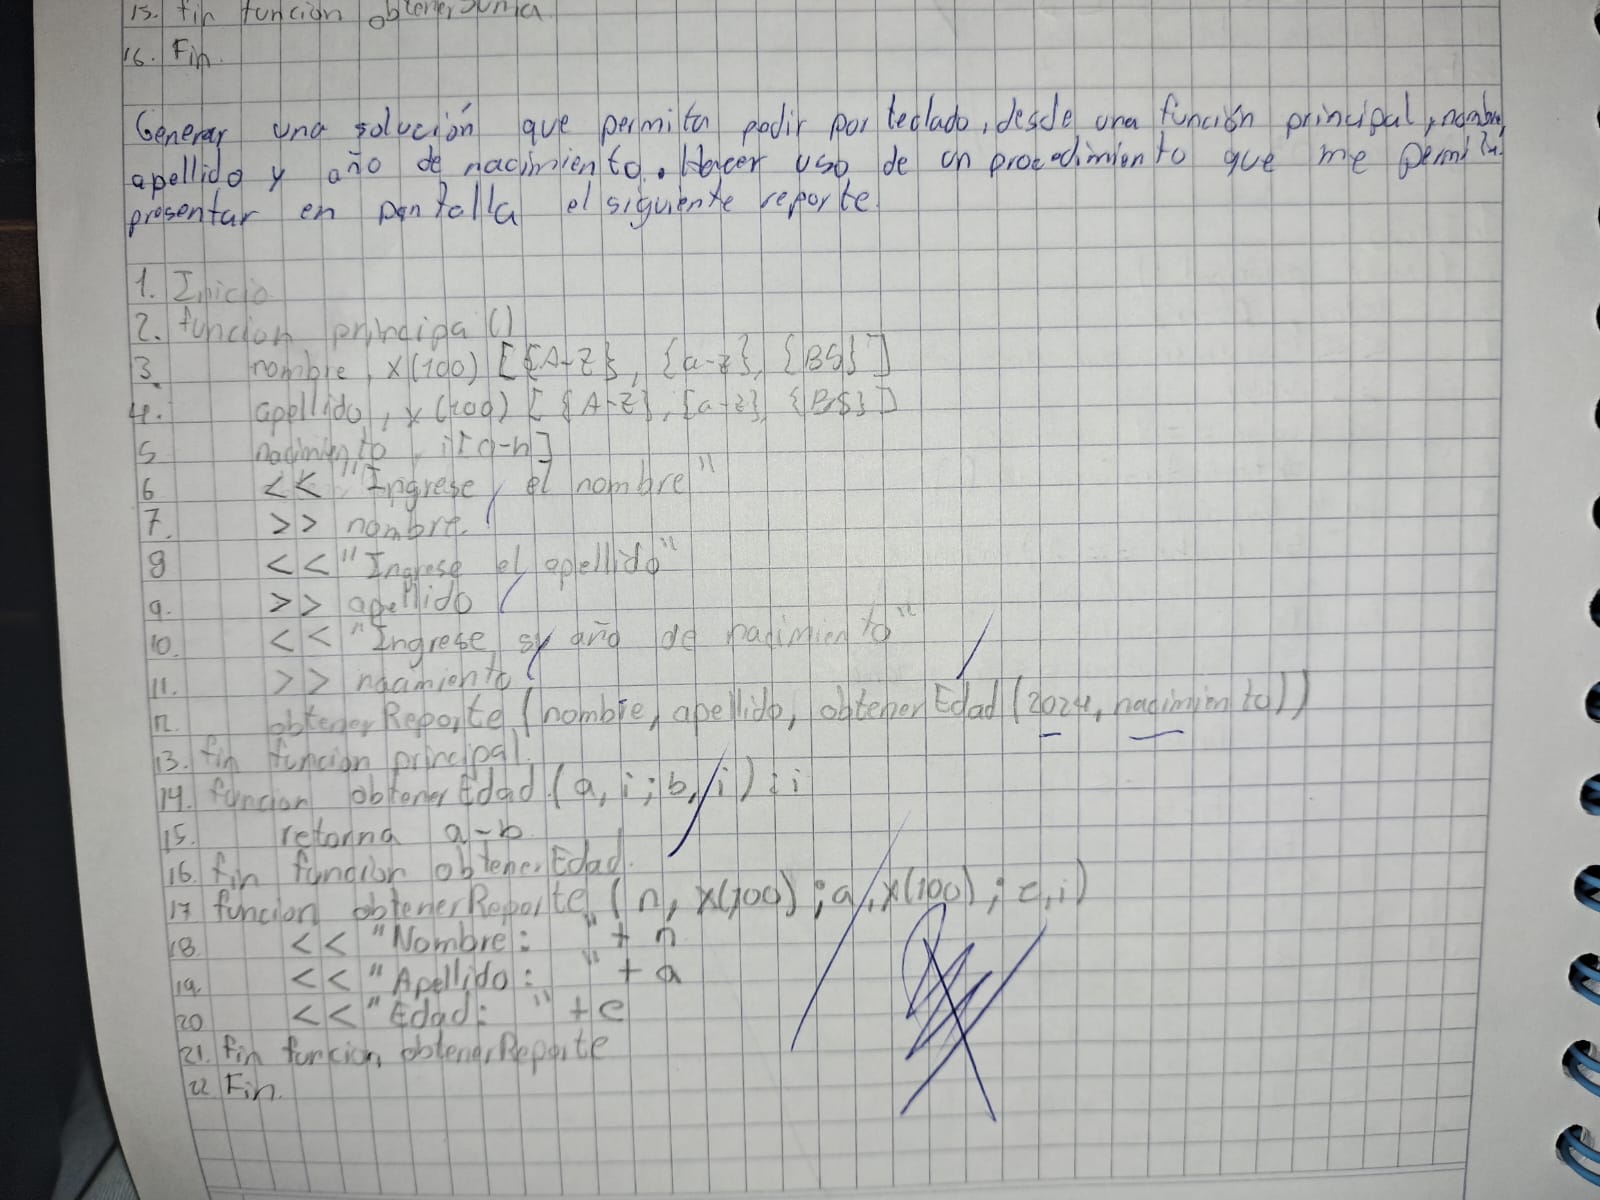 15. fin funcion obtenerSuma
16. Fin.
Generar una solución que permita pedir por teclado, desde una función principal, nombre,
apellido y año de nacimiento. Hacer uso de un procedimiento que me permita
presentar en pantalla el siguiente reporte.
1. Inicio
2. funcion principa()
3. nombre, x(100) [{A-Z}, {a-z}, {BS}]
4. apellido, x(100) [{A-Z}, {a-z}, {BS}]
5 nacimiento, i[0-n]
6 << "Ingrese el nombre"
7. >> nombre.
8 << "Ingrese el apellido"
9. >> apellido
10. << "Ingrese su año de nacimiento"
11. >> nacimiento
12. obtenerReporte (nombre, apellido, obtenerEdad (2024, nacimiento))
13. fin funcion principal.
14. funcion obtenerEdad (a, i; b, i) : i
15. retorna a-b
16. fin funcion obtenerEdad.
17 funcion obtenerReporte (n, x(100); a, x(100); e, i)
18. << "Nombre: " + n
19. << "Apellido: " + a
20 << "Edad: " + e
21. fin funcion obtenerReporte
22 Fin.